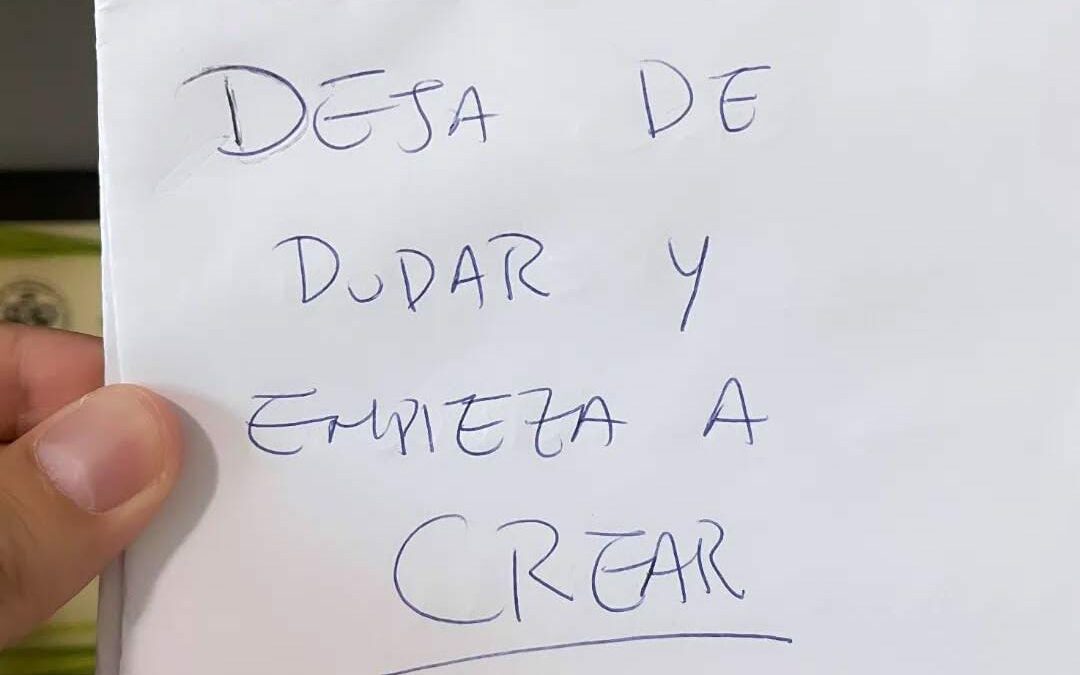 DEJA DE
DUDAR Y
EMPIEZA A
CREAR